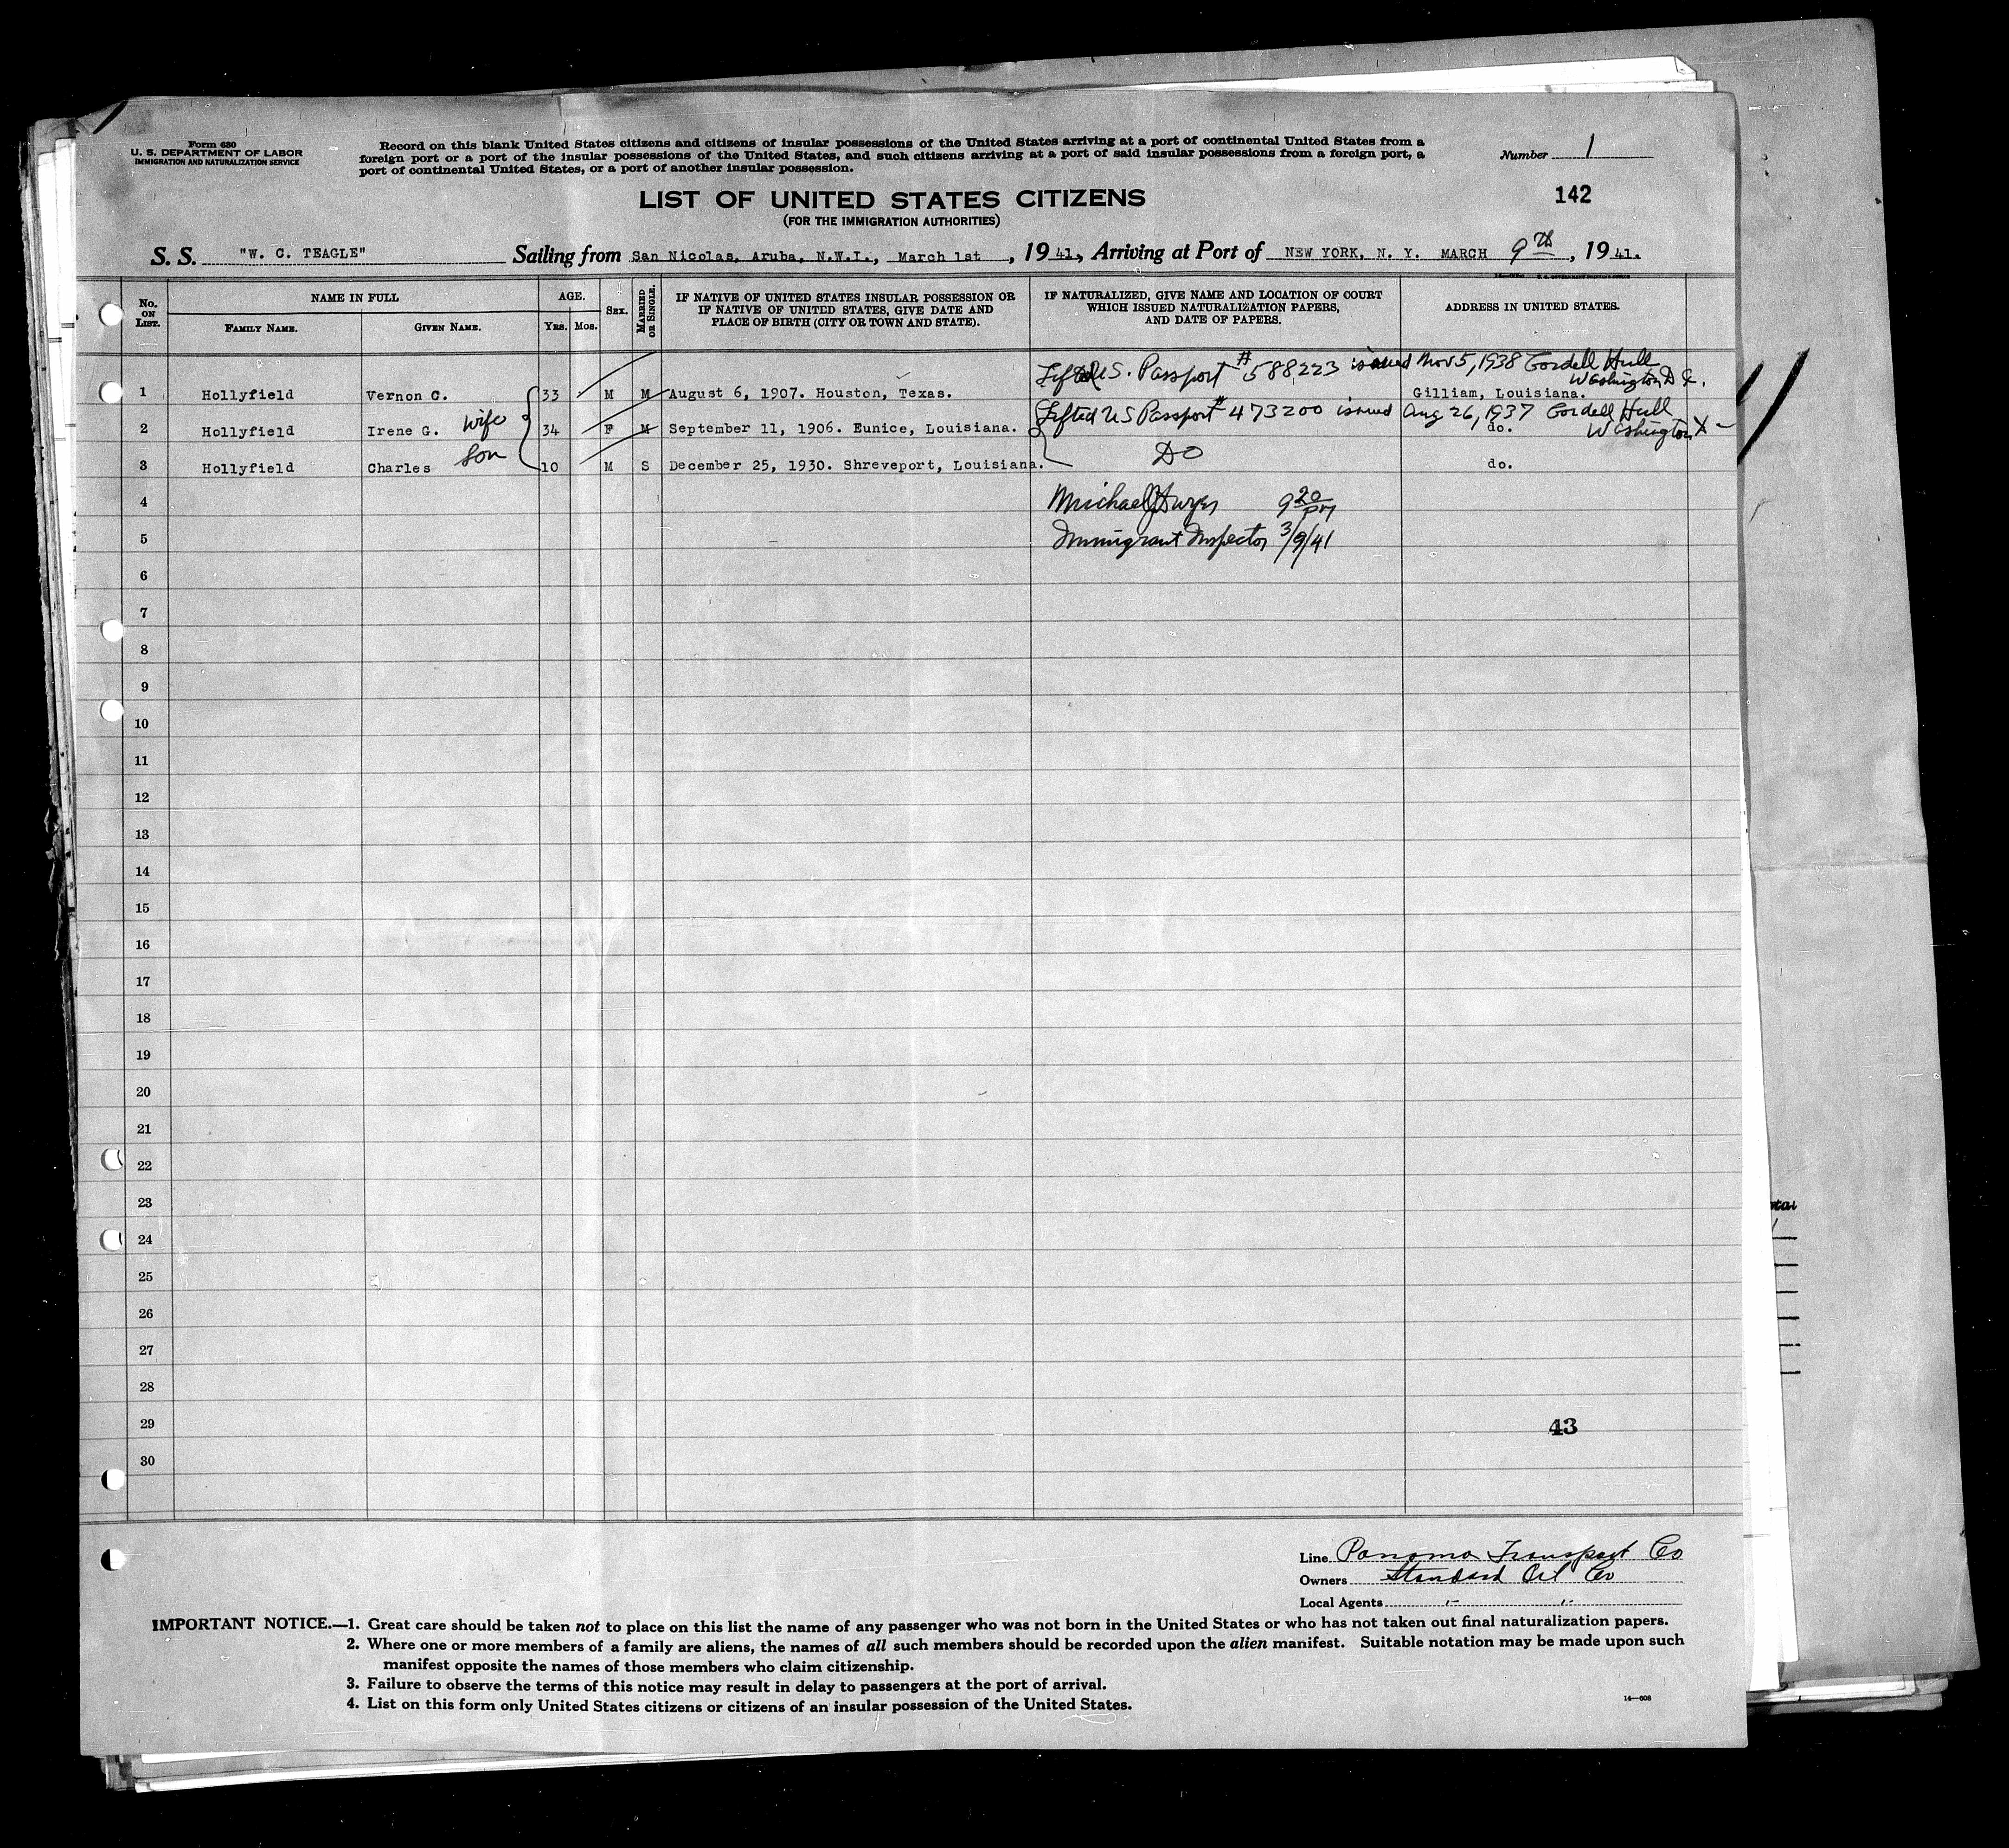 Form 630
U. S. DEPARTMENT OF LABOR
IMMIGRATION AND NATURALIZATION SERVICE
Record on this blank United States citizens and citizens of insular possessions of the United States arriving at a port of continental United States from a
foreign port or a port of the insular possessions of the United States, and such citizens arriving at a port of said insular possessions from a foreign port, a
port of continental United States, or a port of another insular possession.
Number 1
142
LIST OF UNITED STATES CITIZENS
(FOR THE IMMIGRATION AUTHORITIES)
S. S. "W. C. TEAGLE" Sailing from San Nicolas, Aruba, N.W.I., March 1st, 1941, Arriving at Port of NEW YORK, N. Y. MARCH 9th, 1941.
No. ON LIST.
NAME IN FULL
FAMILY NAME. GIVEN NAME.
AGE.
YRS. MOS.
SEX.
MARRIED OR SINGLE.
IF NATIVE OF UNITED STATES INSULAR POSSESSION OR
IF NATIVE OF UNITED STATES, GIVE DATE AND
PLACE OF BIRTH (CITY OR TOWN AND STATE).
IF NATURALIZED, GIVE NAME AND LOCATION OF COURT
WHICH ISSUED NATURALIZATION PAPERS,
AND DATE OF PAPERS.
ADDRESS IN UNITED STATES.
Lifted U.S. Passport # 588223 issued Nov 5, 1938 Cordell Hull
Washington D C.
1 Hollyfield Vernon C. 33 M M August 6, 1907. Houston, Texas. Gilliam, Louisiana.
Lifted US Passport # 473200 issued Aug 26, 1937 Cordell Hull
Washington X -
2 Hollyfield Irene G. wife 34 F M September 11, 1906. Eunice, Louisiana. do.
3 Hollyfield Charles Son 10 M S December 25, 1930. Shreveport, Louisiana. DO do.
4 Michael 9 20 pm
5 Immigrant Inspector 3/9/41
6
7
8
9
10
11
12
13
14
15
16
17
18
19
20
21
22
23
24
25
26
27
28
29 43
30
Line Panama Transport Co
Owners Standard Oil Co
Local Agents " "
IMPORTANT NOTICE.—1. Great care should be taken not to place on this list the name of any passenger who was not born in the United States or who has not taken out final naturalization papers.
2. Where one or more members of a family are aliens, the names of all such members should be recorded upon the alien manifest. Suitable notation may be made upon such
manifest opposite the names of those members who claim citizenship.
3. Failure to observe the terms of this notice may result in delay to passengers at the port of arrival.
4. List on this form only United States citizens or citizens of an insular possession of the United States.
14—608